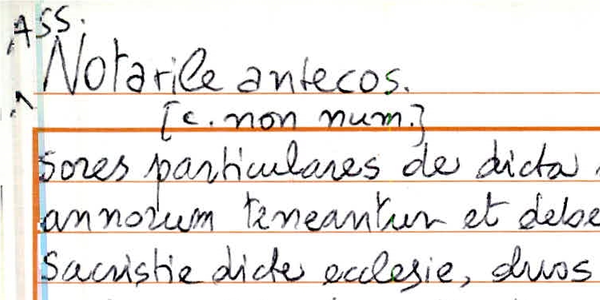 ASS.
Notarile antecos.
[c. non num.]
sores particulares de dicta
annorum teneantur et debe
Sacristie dicte ecclesie, duos